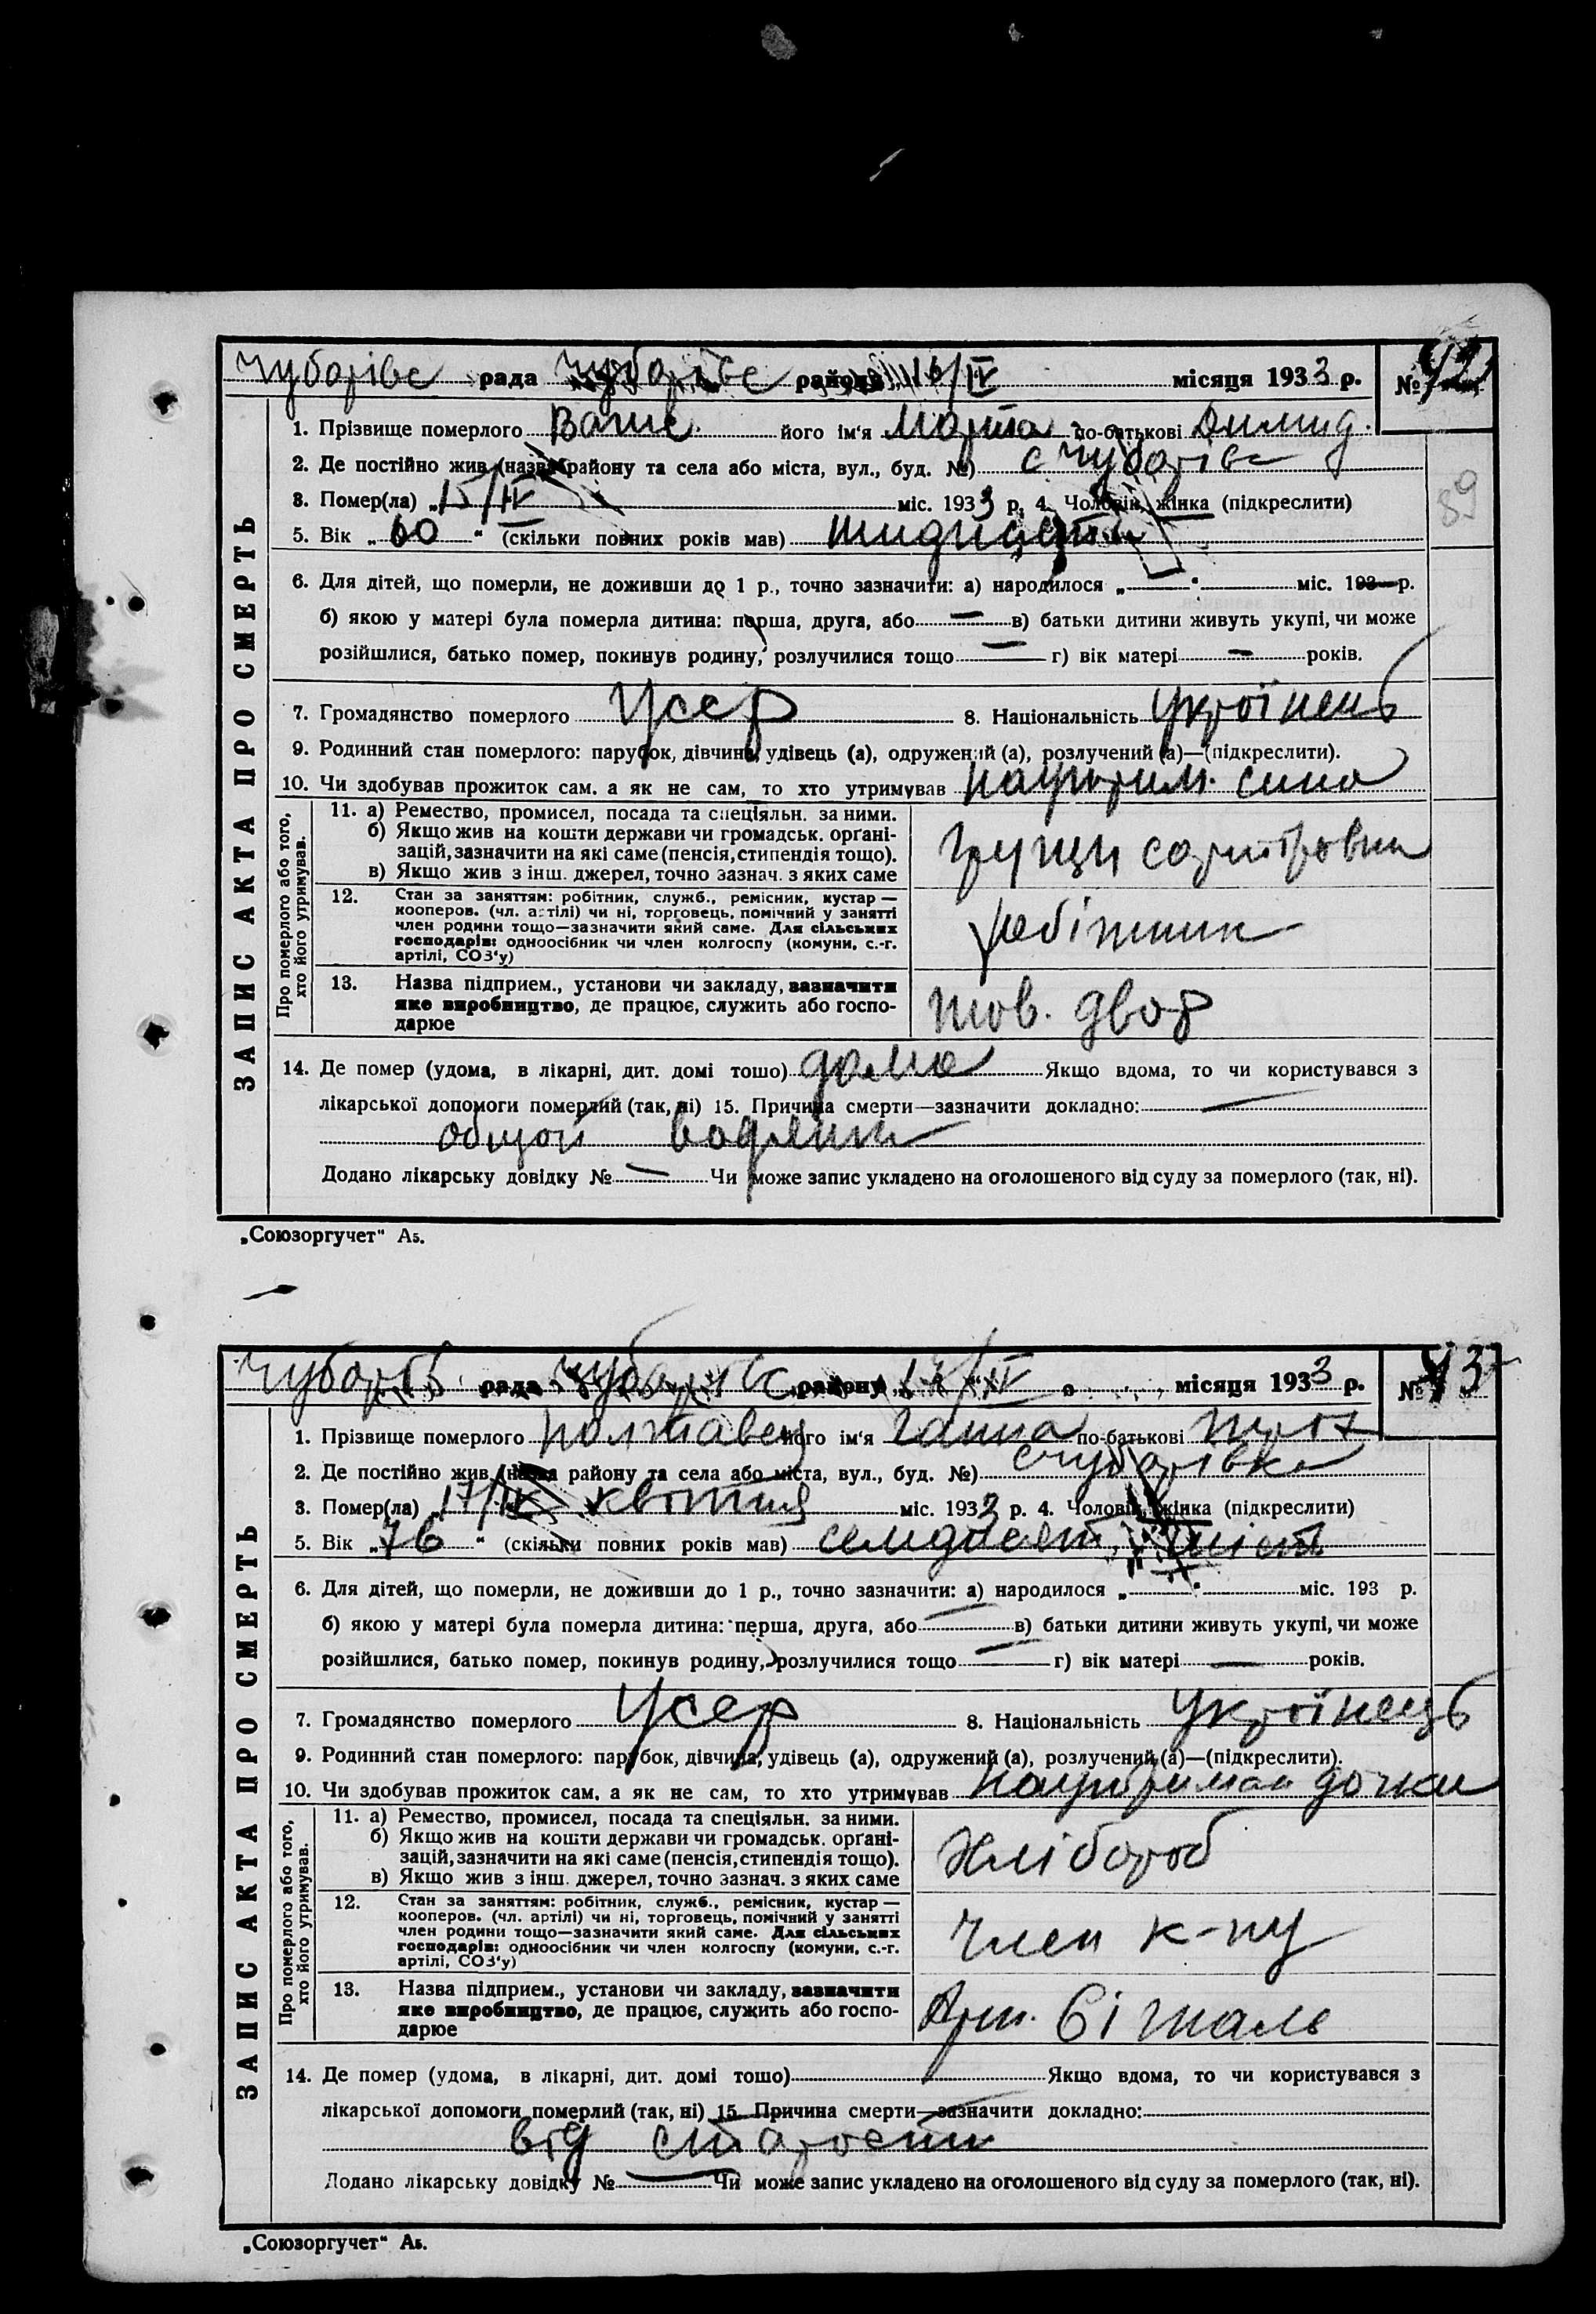 Чубарівс рада Чубарівс району 16/IV місяця 1933 р. № 42
ЗАПИС АКТА ПРО СМЕРТЬ
1. Прізвище померлого Ващ. його ім'я Марта по-батькові Димид.
2. Де постійно жив (назва району та села або міста, вул., буд. №) с Чубарівс
3. Помер(ла) „15/IV міс. 1933 р. 4. Чоловік, жінка (підкреслити)
5. Вік „60" (скільки повних років мав) шидисять
89
6. Для дітей, що померли, не доживши до 1 р., точно зазначити: а) народилося „—"— міс. 193—р.
б) якою у матері була померла дитина: перша, друга, або — в) батьки дитини живуть укупі, чи може
розійшлися, батько помер, покинув родину, розлучилися тощо — г) вік матері — років.
7. Громадянство померлого Усср 8. Національність Українець
9. Родинний стан померлого: парубок, дівчина, удівець (а), одружений (а), розлучений (а)—(підкреслити).
10. Чи здобував прожиток сам, а як не сам, то хто утримував наутрим. сина
Про померлого або того, хто його утримував.
11. а) Ремество, промисел, посада та спеціяльн. за ними.
б) Якщо жив на кошти держави чи громадськ. орґані-
зацій, зазначити на які саме (пенсія, стипендія тощо).
в) Якщо жив з інш. джерел, точно зазнач. з яких саме
12. Стан за заняттям: робітник, служб., ремісник, кустар —
кооперов. (чл. артілі) чи ні, торговець, помічний у занятті
член родини тощо—зазначити який саме. Для сільських
господарів: одноосібник чи член колгоспу (комуни, с.-г.
артілі, СОЗ'у)
робітник
13. Назва підприєм., установи чи закладу, зазначити
яке виробництво, де працює, служить або госпо-
дарює
тов. двор
14. Де помер (удома, в лікарні, дит. домі тошо) дома Якщо вдома, то чи користувався з
лікарської допомоги померлий (так, ні) 15. Причина смерти—зазначити докладно: —
общой водянки
Додано лікарську довідку № — Чи може запис укладено на оголошеного від суду за померлого (так, ні).
„Союзоргучет" А5.
Чубарів. рада Чубарівс району 17/IV місяця 1933 р. № 43
ЗАПИС АКТА ПРО СМЕРТЬ
1. Прізвище померлого Полтавец його ім'я Ганна по-батькові
2. Де постійно жив (назва району та села або міста, вул., буд. №) с Чубарівка
3. Помер(ла) „17/IV квітня міс. 1933 р. 4. Чоловік, жінка (підкреслити)
5. Вік „76" (скільки повних років мав) семдисят шість
6. Для дітей, що померли, не доживши до 1 р., точно зазначити: а) народилося „ " міс. 193 р.
б) якою у матері була померла дитина: перша, друга, або — в) батьки дитини живуть укупі, чи може
розійшлися, батько помер, покинув родину, розлучилися тощо — г) вік матері — років.
7. Громадянство померлого Усср 8. Національність Українець
9. Родинний стан померлого: парубок, дівчина, удівець (а), одружений (а), розлучений (а)—(підкреслити).
10. Чи здобував прожиток сам, а як не сам, то хто утримував наутриман дочки
Про померлого або того, хто його утримував.
11. а) Ремество, промисел, посада та спеціяльн. за ними.
б) Якщо жив на кошти держави чи громадськ. орґані-
зацій, зазначити на які саме (пенсія, стипендія тощо).
в) Якщо жив з інш. джерел, точно зазнач. з яких саме
Хлібороб
12. Стан за заняттям: робітник, служб., ремісник, кустар —
кооперов. (чл. артілі) чи ні, торговець, помічний у занятті
член родини тощо—зазначити який саме. Для сільських
господарів: одноосібник чи член колгоспу (комуни, с.-г.
артілі, СОЗ'у)
Член к-пу
13. Назва підприєм., установи чи закладу, зазначити
яке виробництво, де працює, служить або госпо-
дарює
14. Де помер (удома, в лікарні, дит. домі тошо) Якщо вдома, то чи користувався з
лікарської допомоги померлий (так, ні) 15. Причина смерти—зазначити докладно:
від старости
Додано лікарську довідку № — Чи може запис укладено на оголошеного від суду за померлого (так, ні).
„Союзоргучет" А5.